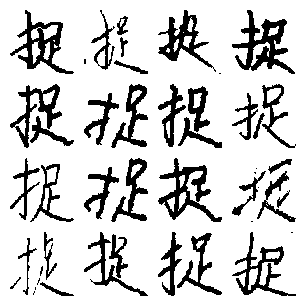 捉捉捉捉
捉捉捉捉
捉捉捉捉
捉捉捉捉